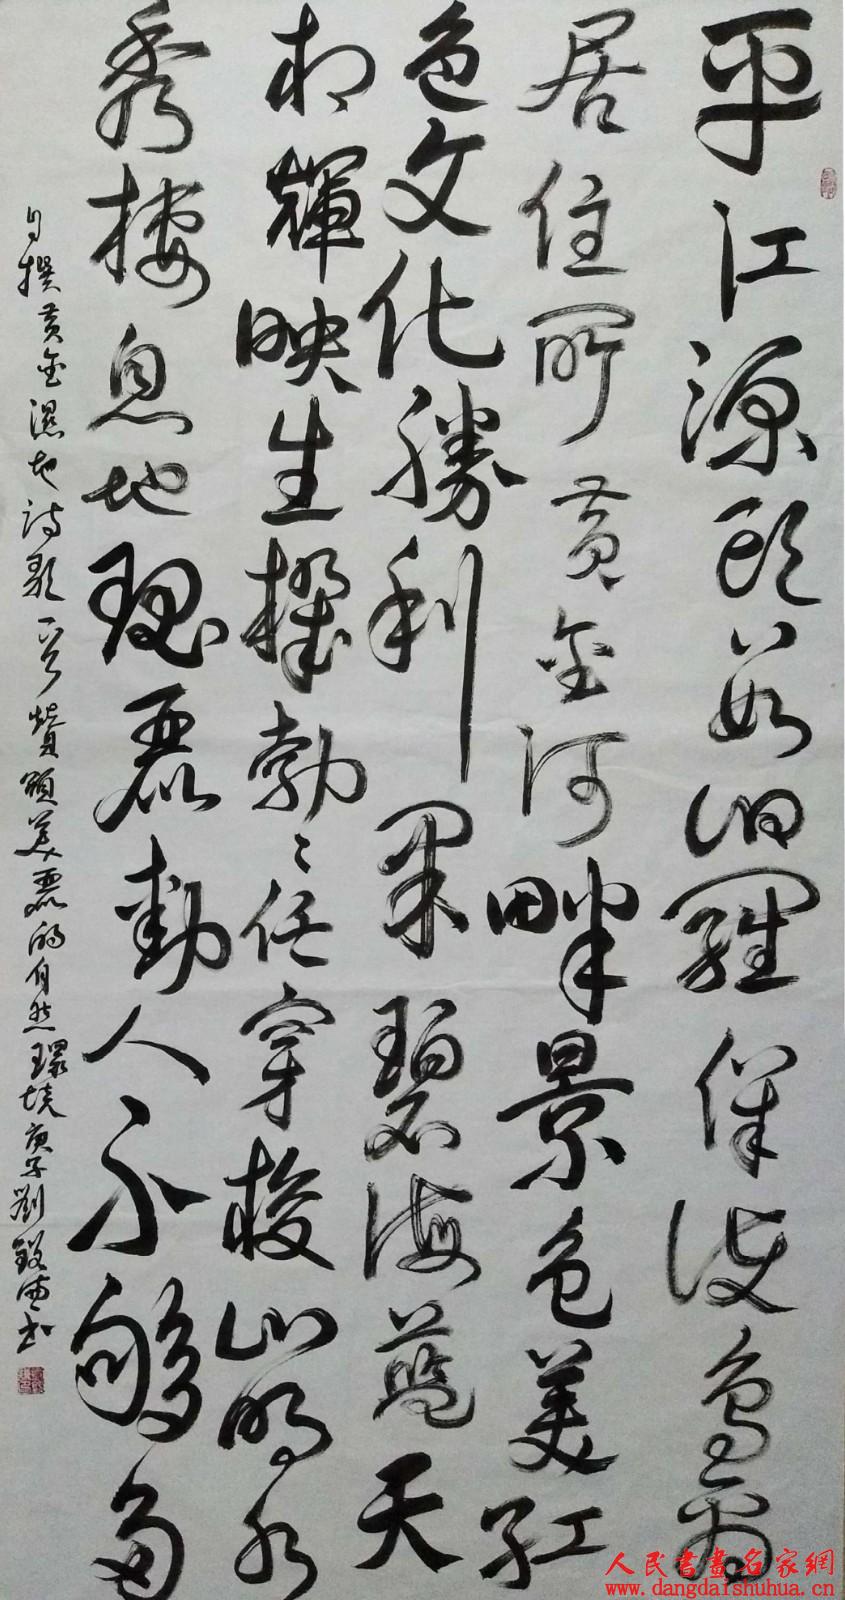 平江源頭若汨羅保護鳥禽
居住所黃金河畔景色美紅
色文化勝利果碧海藍天
相輝映生機勃〻任穿梭山明水
秀棲息地瑰麗動人不夠多
自撰黃金濕地詩歌一首贊頌美麗的自然環境庚子劉書
人民書畫名家網
www.dangdaishuhua.cn